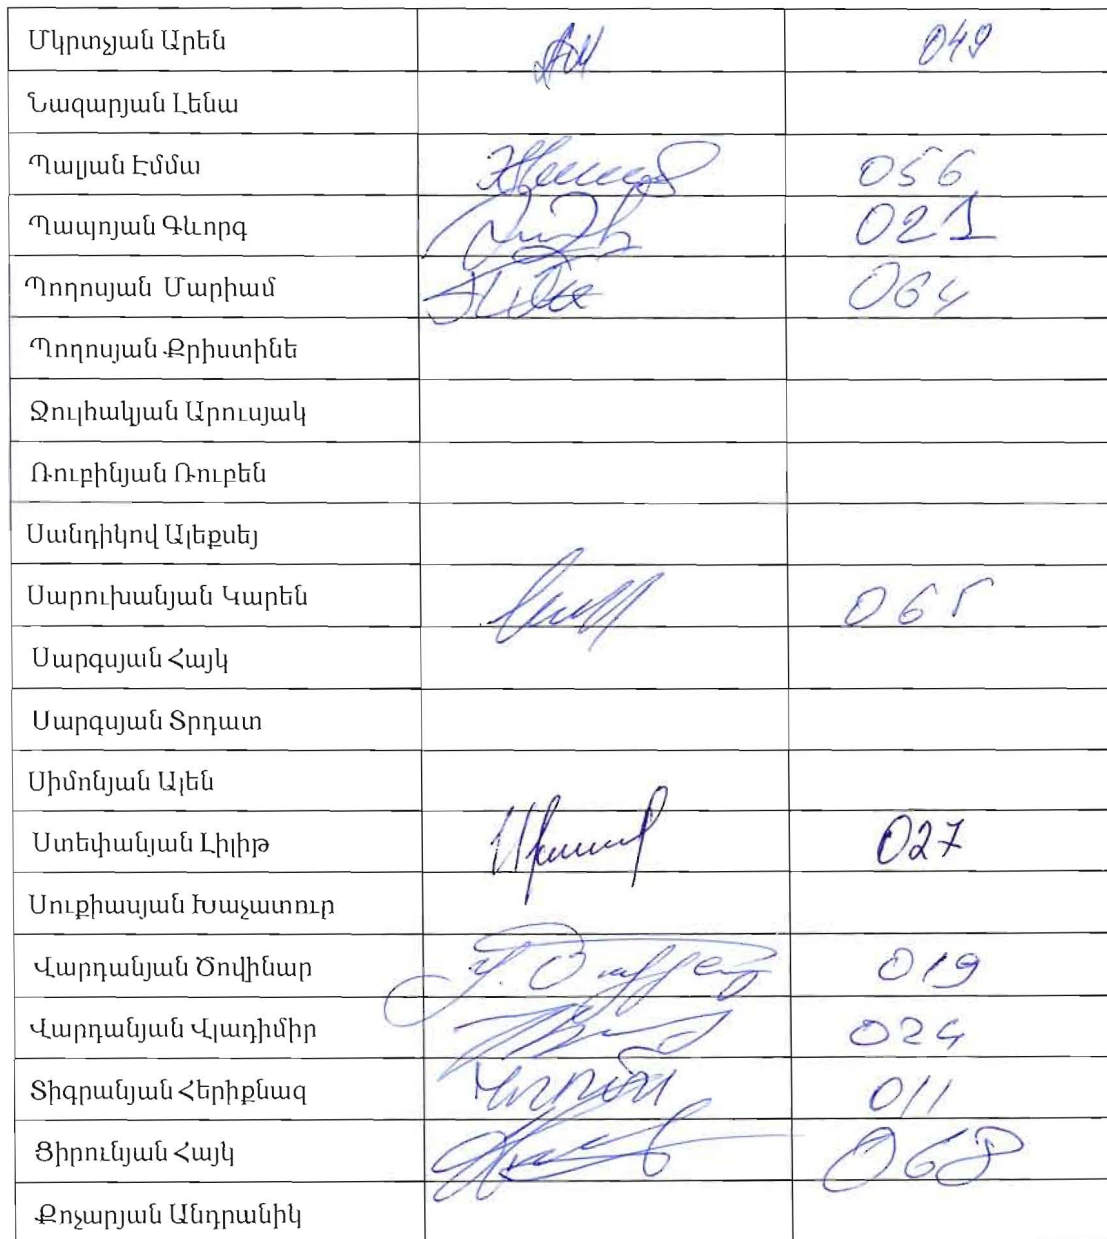 Մկրտչյան Արեն 049
Նազարյան Լենա
Պալյան Էմմա 056
Պապոյան Գևորգ 021
Պողոսյան Մարիամ 064
Պողոսյան Քրիստինե
Ջուլհակյան Արուսյակ
Ռուբինյան Ռուբեն
Սանդիկով Ալեքսեյ
Սարուխանյան Կարեն 065
Սարգսյան Հայկ
Սարգսյան Տրդատ
Սիմոնյան Ալեն
Ստեփանյան Լիլիթ 027
Սուքիասյան Խաչատուր
Վարդանյան Ծովինար 019
Վարդանյան Վլադիմիր 024
Տիգրանյան Հերիքնազ 011
Ցիրունյան Հայկ 068
Քոչարյան Անդրանիկ